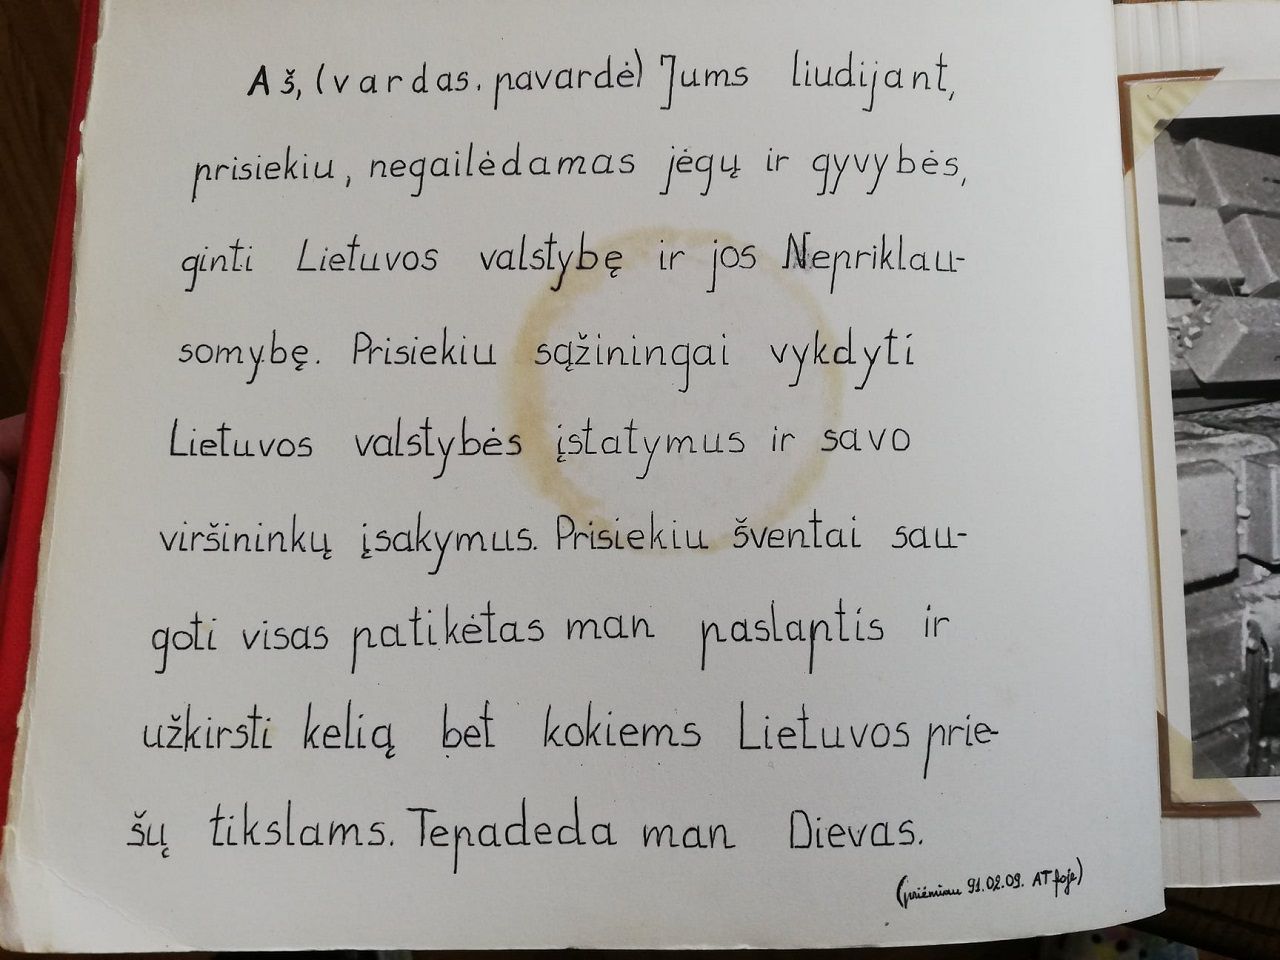 Aš, (vardas. pavardė) Jums liudijant,
prisiekiu, negailėdamas jėgų ir gyvybės,
ginti Lietuvos valstybę ir jos Nepriklau-
somybę. Prisiekiu sąžiningai vykdyti
Lietuvos valstybės įstatymus ir savo
viršininkų įsakymus. Prisiekiu šventai sau-
goti visas patikėtas man paslaptis ir
užkirsti kelią bet kokiems Lietuvos prie-
šų tikslams. Tepadeda man Dievas.
(priėmiau 91.02.09. AT foje)